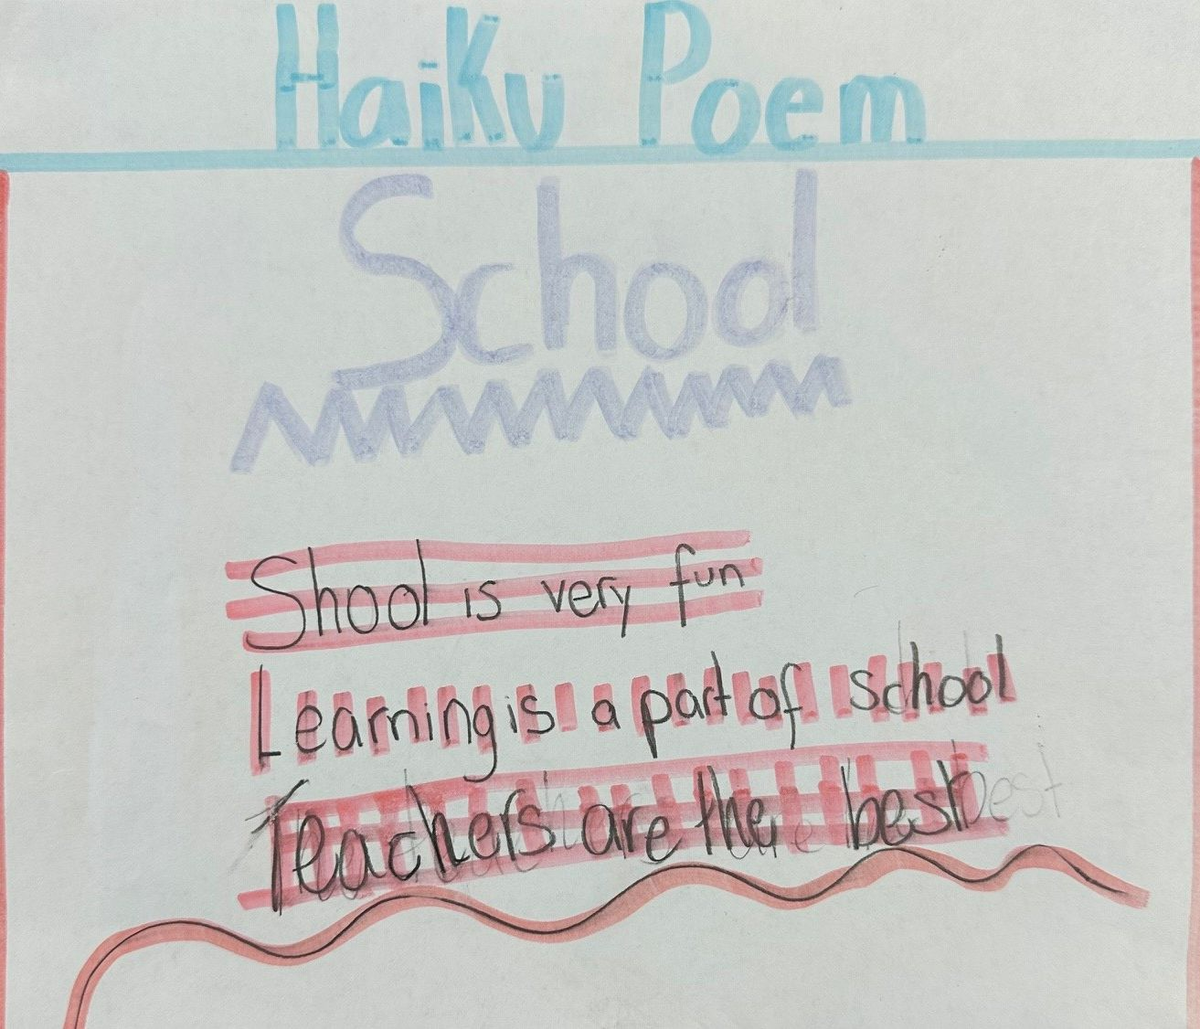 Haiku Poem
School
Shool is very fun
Learning is a part of school
Teachers are the best